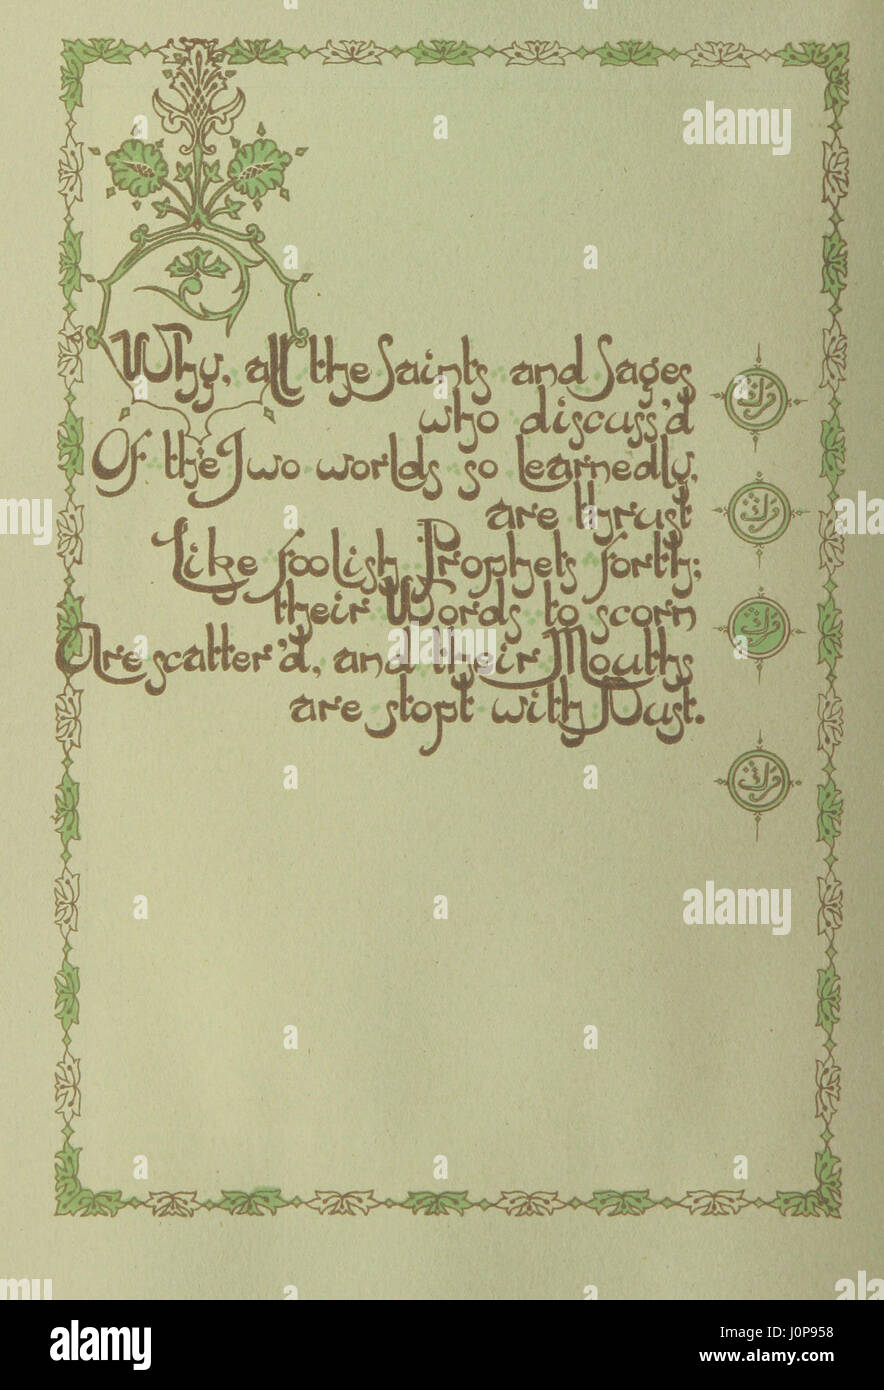 Why, all the Saints and Sages
who discuss'd
Of the Two worlds so learnedly,
are thrust
Like foolish Prophets forth;
their Words to scorn
Are scatter'd, and their Mouths
are stopt with Dust.
alamy
alamy
alamy
a
alamy
Image ID: J0P958
www.alamy.com